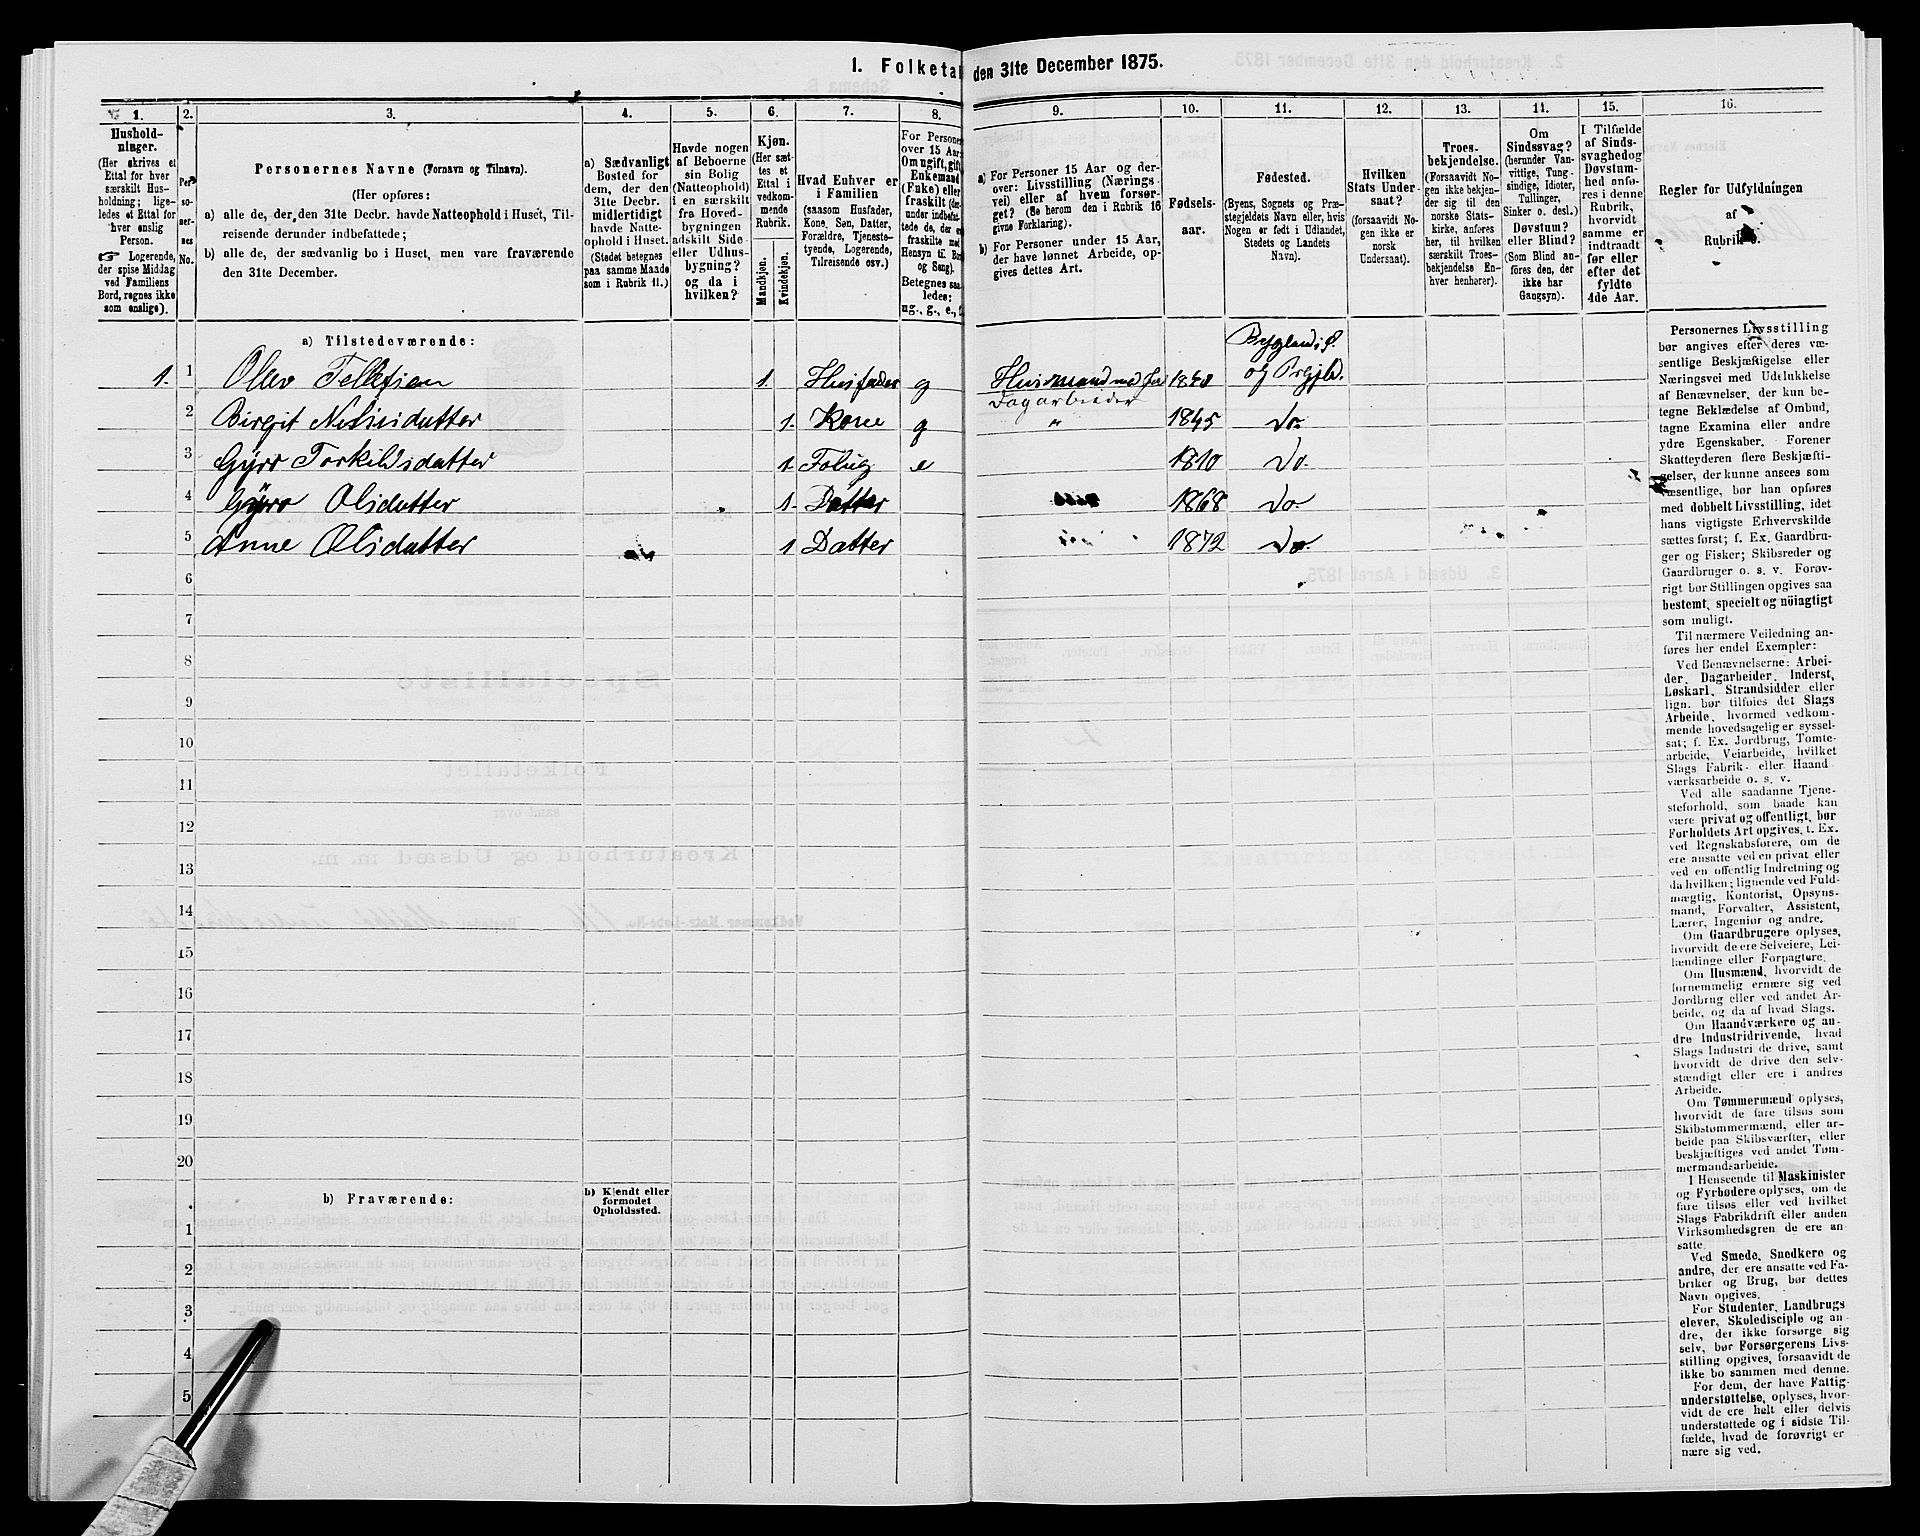 1. Folketal den 31te December 1875.
1. 2. 3. 4. 5. 6. 7. 8. 9. 10. 11. 12. 13. 14. 15. 16.
Hushold-
ninger.
(Her skrives et
Ettal for hver
særskilt Hus-
holdning; lige-
ledes et Ettal for
hver enslig
Person.
☞ Logerende,
der spise Middag
ved Familiens
Bord, regnes ikke
som enslige).
Per-
so-
ner-
nes
No.
Personernes Navne (Fornavn og Tilnavn).
(Her opføres:
a) alle de, der den 31te Decbr. havde Natteophold i Huset, Til-
reisende derunder indbefattede;
b) alle de, der sædvanlig bo i Huset, men vare fraværende
den 31te December.
a) Sædvanligt
Bosted for
dem, der den
31te Decbr.
midlertidigt
havde Natte-
ophold i Huset.
(Stedet betegnes
paa samme Maade
som i Rubrik 11.)
Havde nogen
af Beboerne
sin Bolig
(Natteophold)
i en særskilt
fra Hoved-
bygningen
adskilt Side-
eller Udhus-
bygning?
og da i
hvilken?
Kjøn.
(Her sæt-
tes et
Ettal i
vedkom-
mende
Rubrik.
Mandkjøn.
Kvindekjøn.
Hvad Enhver er
i Familien
(saasom Husfader,
Kone, Søn, Datter,
Forældre, Tjeneste-
tyende, Logerende,
Tilreisende osv.)
For Personer
over 15 Aar:
Om ugift, gift,
Enkemand
(Enke) eller
fraskilt
Betegnes saa-
ledes:
ug., g., e., f.
a) For Personer 15 Aar og der-
over: Livsstilling (Nærings-
vei) eller af hvem forsør-
get? (Se herom den i Rubrik 16
givne Forklaring).
b) For Personer under 15 Aar,
der have lønnet Arbeide, op-
gives dettes Art.
Fødsels-
aar.
Fødested.
(Byens, Sognets og Præ-
stegjeldets Navn eller, hvis
Nogen er født i Udlandet,
Stedets og Landets
Navn).
Hvilken
Stats Under-
saat?
(forsaavidt No-
gen ikke er
norsk
Undersaat).
Troes-
bekjendelse.
(Forsaavidt No-
gen ikke bekjen-
der sig til den
norske Stats-
kirke, anføres
her, til hvilken
særskilt Troes-
bekjendelse En-
hver henhører).
Om
Sindssvag?
(herunder Van-
vittige, Tung-
sindige, Idioter,
Tullinger,
Sinker o. desl.)
Døvstum?
eller Blind?
(Som Blind an-
føres den, der
ikke har
Gangsyn).
I Tilfælde
af Sinds-
svaghed og
Døvstum-
hed anfø-
res i denne
Rubrik,
hvorvidt
samme er
indtraadt
før eller
efter det
fyldte
4de Aar.
Regler for Udfyldningen
af
Rubrik 9.
a) Tilstedeværende:
1. 1 Olav Tellefsen 1. Husfader g Husmand med Jord Dagarbeider Bygland S. og Prgjld.
2 Birgit Nilsisdatter 1. Kone g " 1845 Do.
3 Gyro Torkildsdatter 1. e 1810 Do.
4 Gyro Olsdatter 1. Datter 1868 Do.
5 Anne Olsdatter 1 Datter 1872 Do.
6
7
8
9
10
11
12
13
14
15
16
17
18
19
20
b) Fraværende:
b) Kjendt eller
formodet
Opholdssted.
1
2
3
4
5
Personernes Livsstilling
bør angives efter deres væ-
sentlige Beskjæftigelse eller
Næringsvei med Udelukkelse
af Benævnelser, der kun be-
tegne Beklædelse af Ombud,
tagne Examina eller andre
ydre Egenskaber. Forener
Skatteyderen flere Beskjæfti-
gelser, der kunne ansees som
væsentlige, bør han opføres
med dobbelt Livsstilling, idet
hans vigtigste Erhvervskilde
sættes først; f. Ex. Gaardbru-
ger og Fisker; Skibsreder og
Gaardbruger o. s. v. Forøv-
rigt bør Stillingen opgives saa
bestemt, specielt og nöiagtigt
som muligt.
Til nærmere Veiledning an-
føres her endel Exempler:
Ved Benævnelserne: Arbei-
der, Dagarbeider, Inderst,
Løskarl, Strandsidder eller
lign. bør tilføies det Slags
Arbeide, hvormed vedkom-
mende hovedsagelig er syssel-
sat; f. Ex. Jordbrug, Tomte-
arbeide, Veiarbeide, hvilket
Slags Fabrik- eller Haand-
værksarbeide o. s. v.
Ved alle saadanne Tjene-
steforhold, som baade kan
være privat og offentligt, bør
Forholdets Art opgives, t. Ex.
ved Regnskabsførere, om de
ere ansatte ved en privat eller
ved en offentlig Indretning og
da hvilken; lignende ved Fuld-
mægtig, Kontorist, Opsyns-
mand, Forvalter, Assistent,
Lærer, Ingeniør og andre.
Om Gaardbrugere oplyses,
hvorvidt de ere Selveiere, Lei-
lændinge eller Forpagtere.
Om Husmænd, hvorvidt de
fornemmelig ernære sig ved
Jordbrug eller ved andet Ar-
beide, og da af hvad Slags.
Om Haandværkere og an-
dre Industridrivende, hvad
Slags Industri de drive, samt
hvorvidt de drive den selv-
stændigt eller ere i andres
Arbeide.
Om Tømmermænd oplyses,
hvorvidt de fare tilsøs som
Skibstømmermænd, eller ar-
beide paa Skibsværfter, eller
beskjæftiges ved andet Tøm-
mermandsarbeide.
I Henseende til Maskinister
og Fyrbødere oplyses, om de
fare tilsøs eller ved hvilket
Slags Fabrikdrift eller anden
Virksomhedsgren de ere an-
satte.
Ved Smede, Snedkere og
andre, der ere ansatte ved Fa-
briker og Brug, bør dettes
Navn opgives.
For Studenter, Landbrugs-
elever, Skoledisciple og an-
dre, der ikke forsørge sig
selv, bør Forsørgerens Livs-
stilling opgives, forsaavidt de
ikke bo sammen med denne.
For dem, der have Fattig-
understøttelse, oplyses, hvor-
vidt de ere helt eller delvis
understøttede og i sidste Til-
fælde, hvad de forøvrigt er-
nære sig ved.